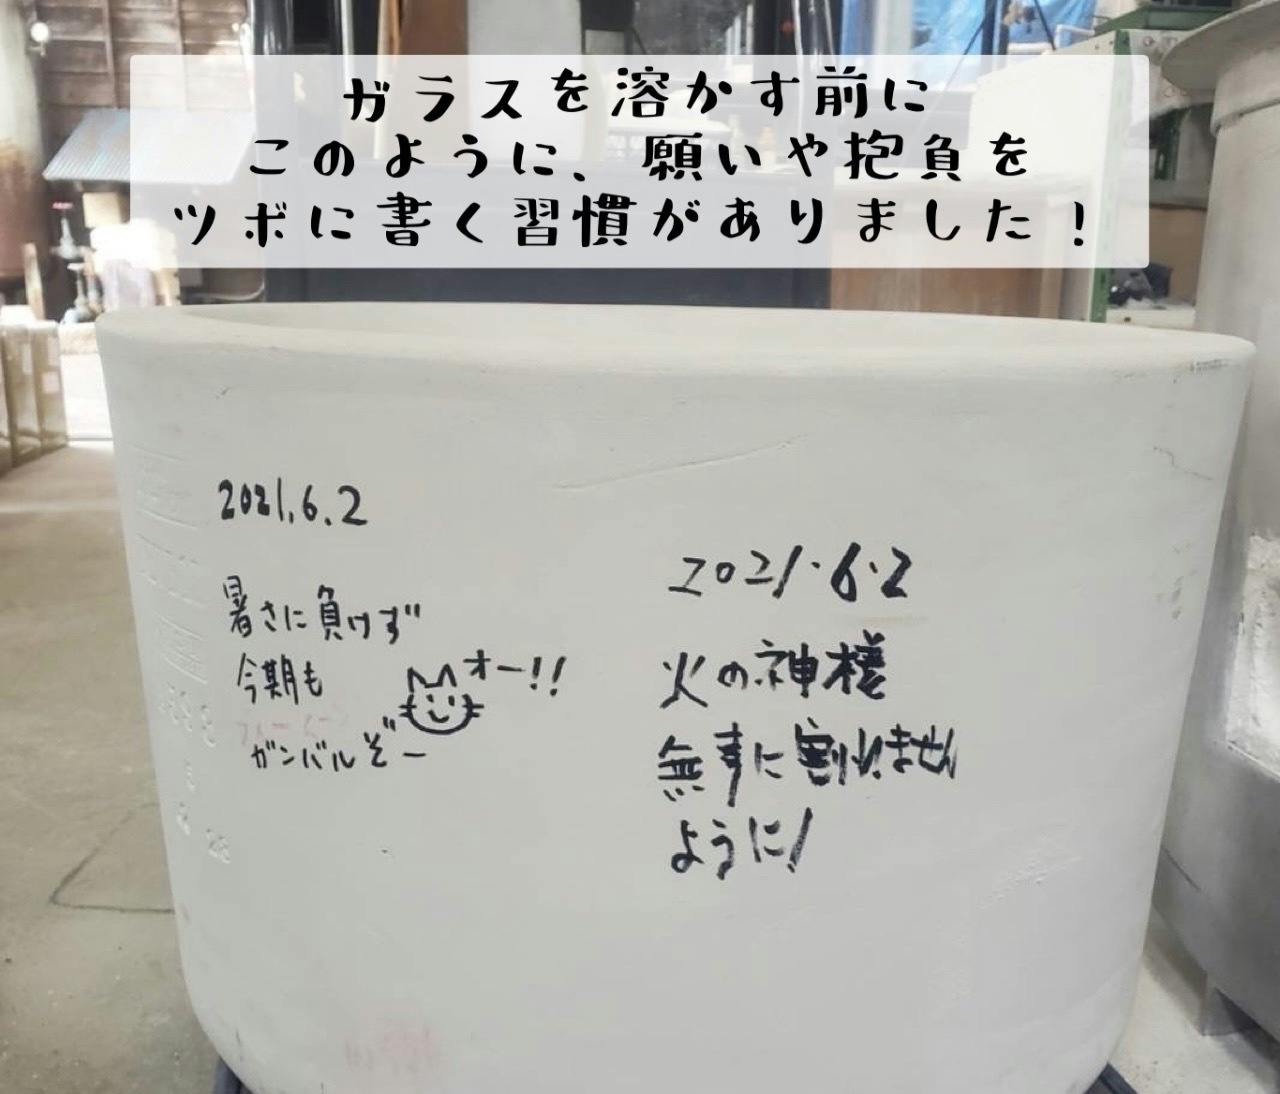 ガラスを溶かす前に
このように、願いや抱負を
ツボに書く習慣がありました!
2021.6.2
暑さに負けず
今期も
ガンバルぞー
オー!!
2021.6.2
火の神様
無事に割れません
ように!